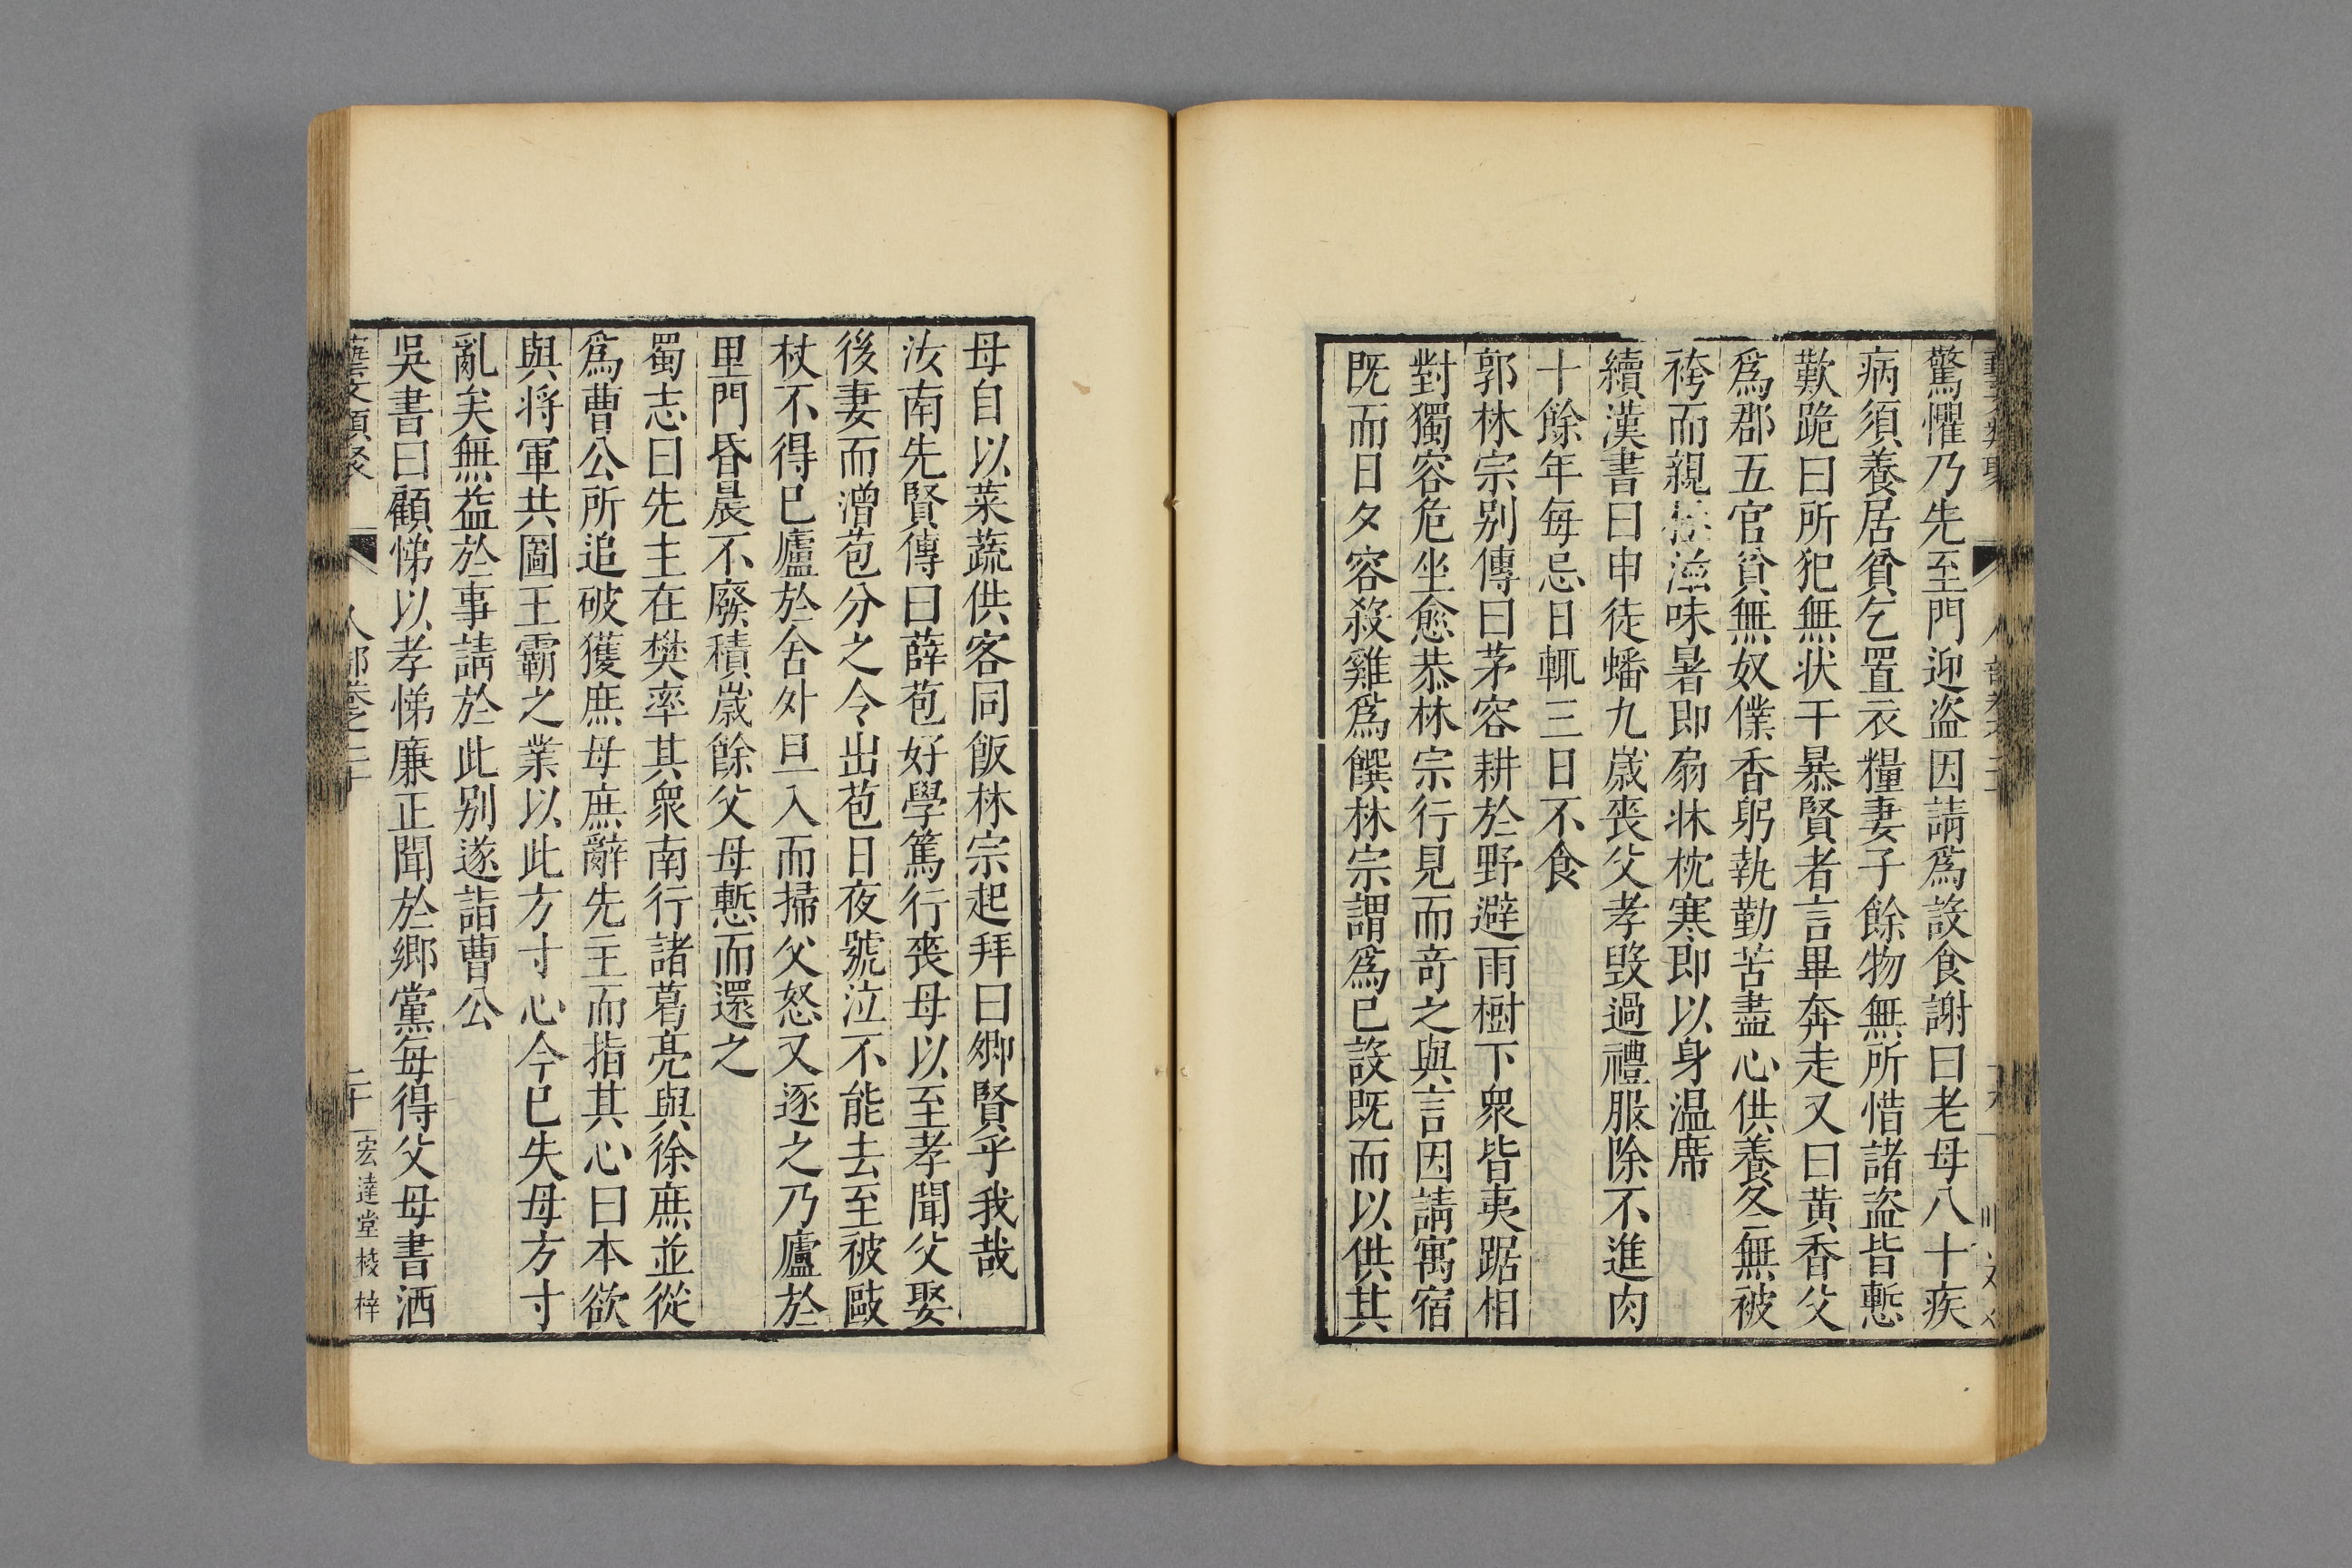 驚懼乃先至門迎盗因請爲設食謝曰老母八十疾
病須養居貧乞置衣糧妻子餘物無所惜諸盗皆慙
歎跪曰所犯無狀干暴賢者言畢奔走又曰黄香父
爲郡五官貧無奴僕香躬執勤苦盡心供養冬無被
袴而親極滋味暑即扇牀枕寒即以身温席
續漢書曰申徒蟠九歲喪父孝毀過禮服除不進肉
十餘年每忌日輒三日不食
郭林宗别傳曰茅容耕於野避雨樹下衆皆夷踞相
對獨容危坐愈恭林宗行見而竒之與言因請寓宿
既而日夕容殺雞爲饌林宗謂爲已設既而以供其
母自以菜蔬供客同飯林宗起拜曰卿賢乎我哉
汝南先賢傳曰薛苞好學篤行喪母以至孝聞父娶
後妻而憎苞分之令出苞日夜號泣不能去至被毆
杖不得已廬於舍外旦入而掃父怒又逐之乃廬於
里門昏晨不廢積歲餘父母慙而還之
蜀志曰先主在樊率其衆南行諸葛亮與徐庶並從
爲曹公所追破獲庶母庶辭先主而指其心曰本欲
與将軍共圖王霸之業以此方寸心今已失母方寸
亂矣無益於事請於此别遂詣曹公
吳書曰顧悌以孝悌廉正聞於鄉黨每得父母書洒
藝文類聚 人部卷之二十 二十 宏達堂校梓